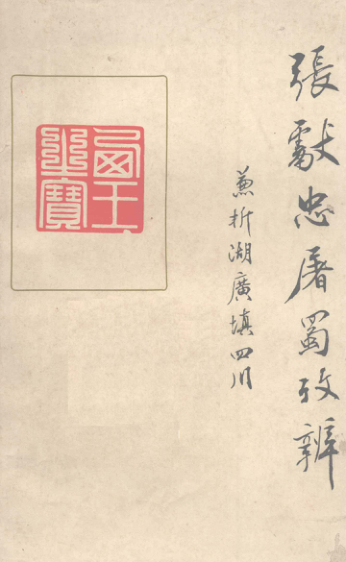 張獻忠屠蜀攷辨
兼析湖廣填四川
西王之寶